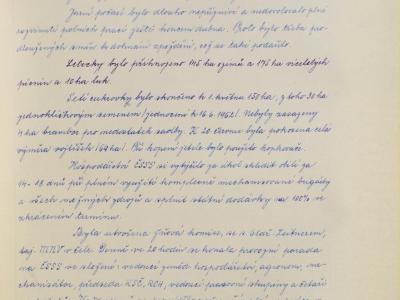 Jarní počasí bylo dlouho nepříznivé a nedovolovalo plně
rozvinutí polních prací ještě koncem dubna. Proto bylo třeba pro-
dloužených směn k dohnání zpoždění, což se také podařilo.
Letecky bylo přihnojeno 145 ha ozimů a 175 ha víceletých
pícnin a 10 ha luk.
Setí cukrovky bylo skončeno k 1. květnu 150 ha, z toho 30 ha
jednoklíčkovým semenem (jednocení k 16.6. 1962). Nebyly zasazeny
4 ha brambor pro nedostatek sadby. K 20. červnu byla pokosena celá
výměra vojtěšek (64 ha). Při kopení jetele bylo použito kopkovače.
Hospodářství ČSSS si vytýčilo za úkol sklidit obilí za
14 - 18 dnů při plném využití komplexně mechanisované brigády
a všech nažených zdrojů a splnit státní dodávky na 100% ve
zkráceném termínu.
Byla utvořena žňová komise, se s. Zeitnerem,
taj. MNV v čele. Denně ve 20 hodin se konala provozní porada
na ČSSS ve složení: vedoucí úseků hospodářství, agronom, me-
chanisátor, předseda KSČ, ROH, vedoucí pracovní skupiny a ostatní